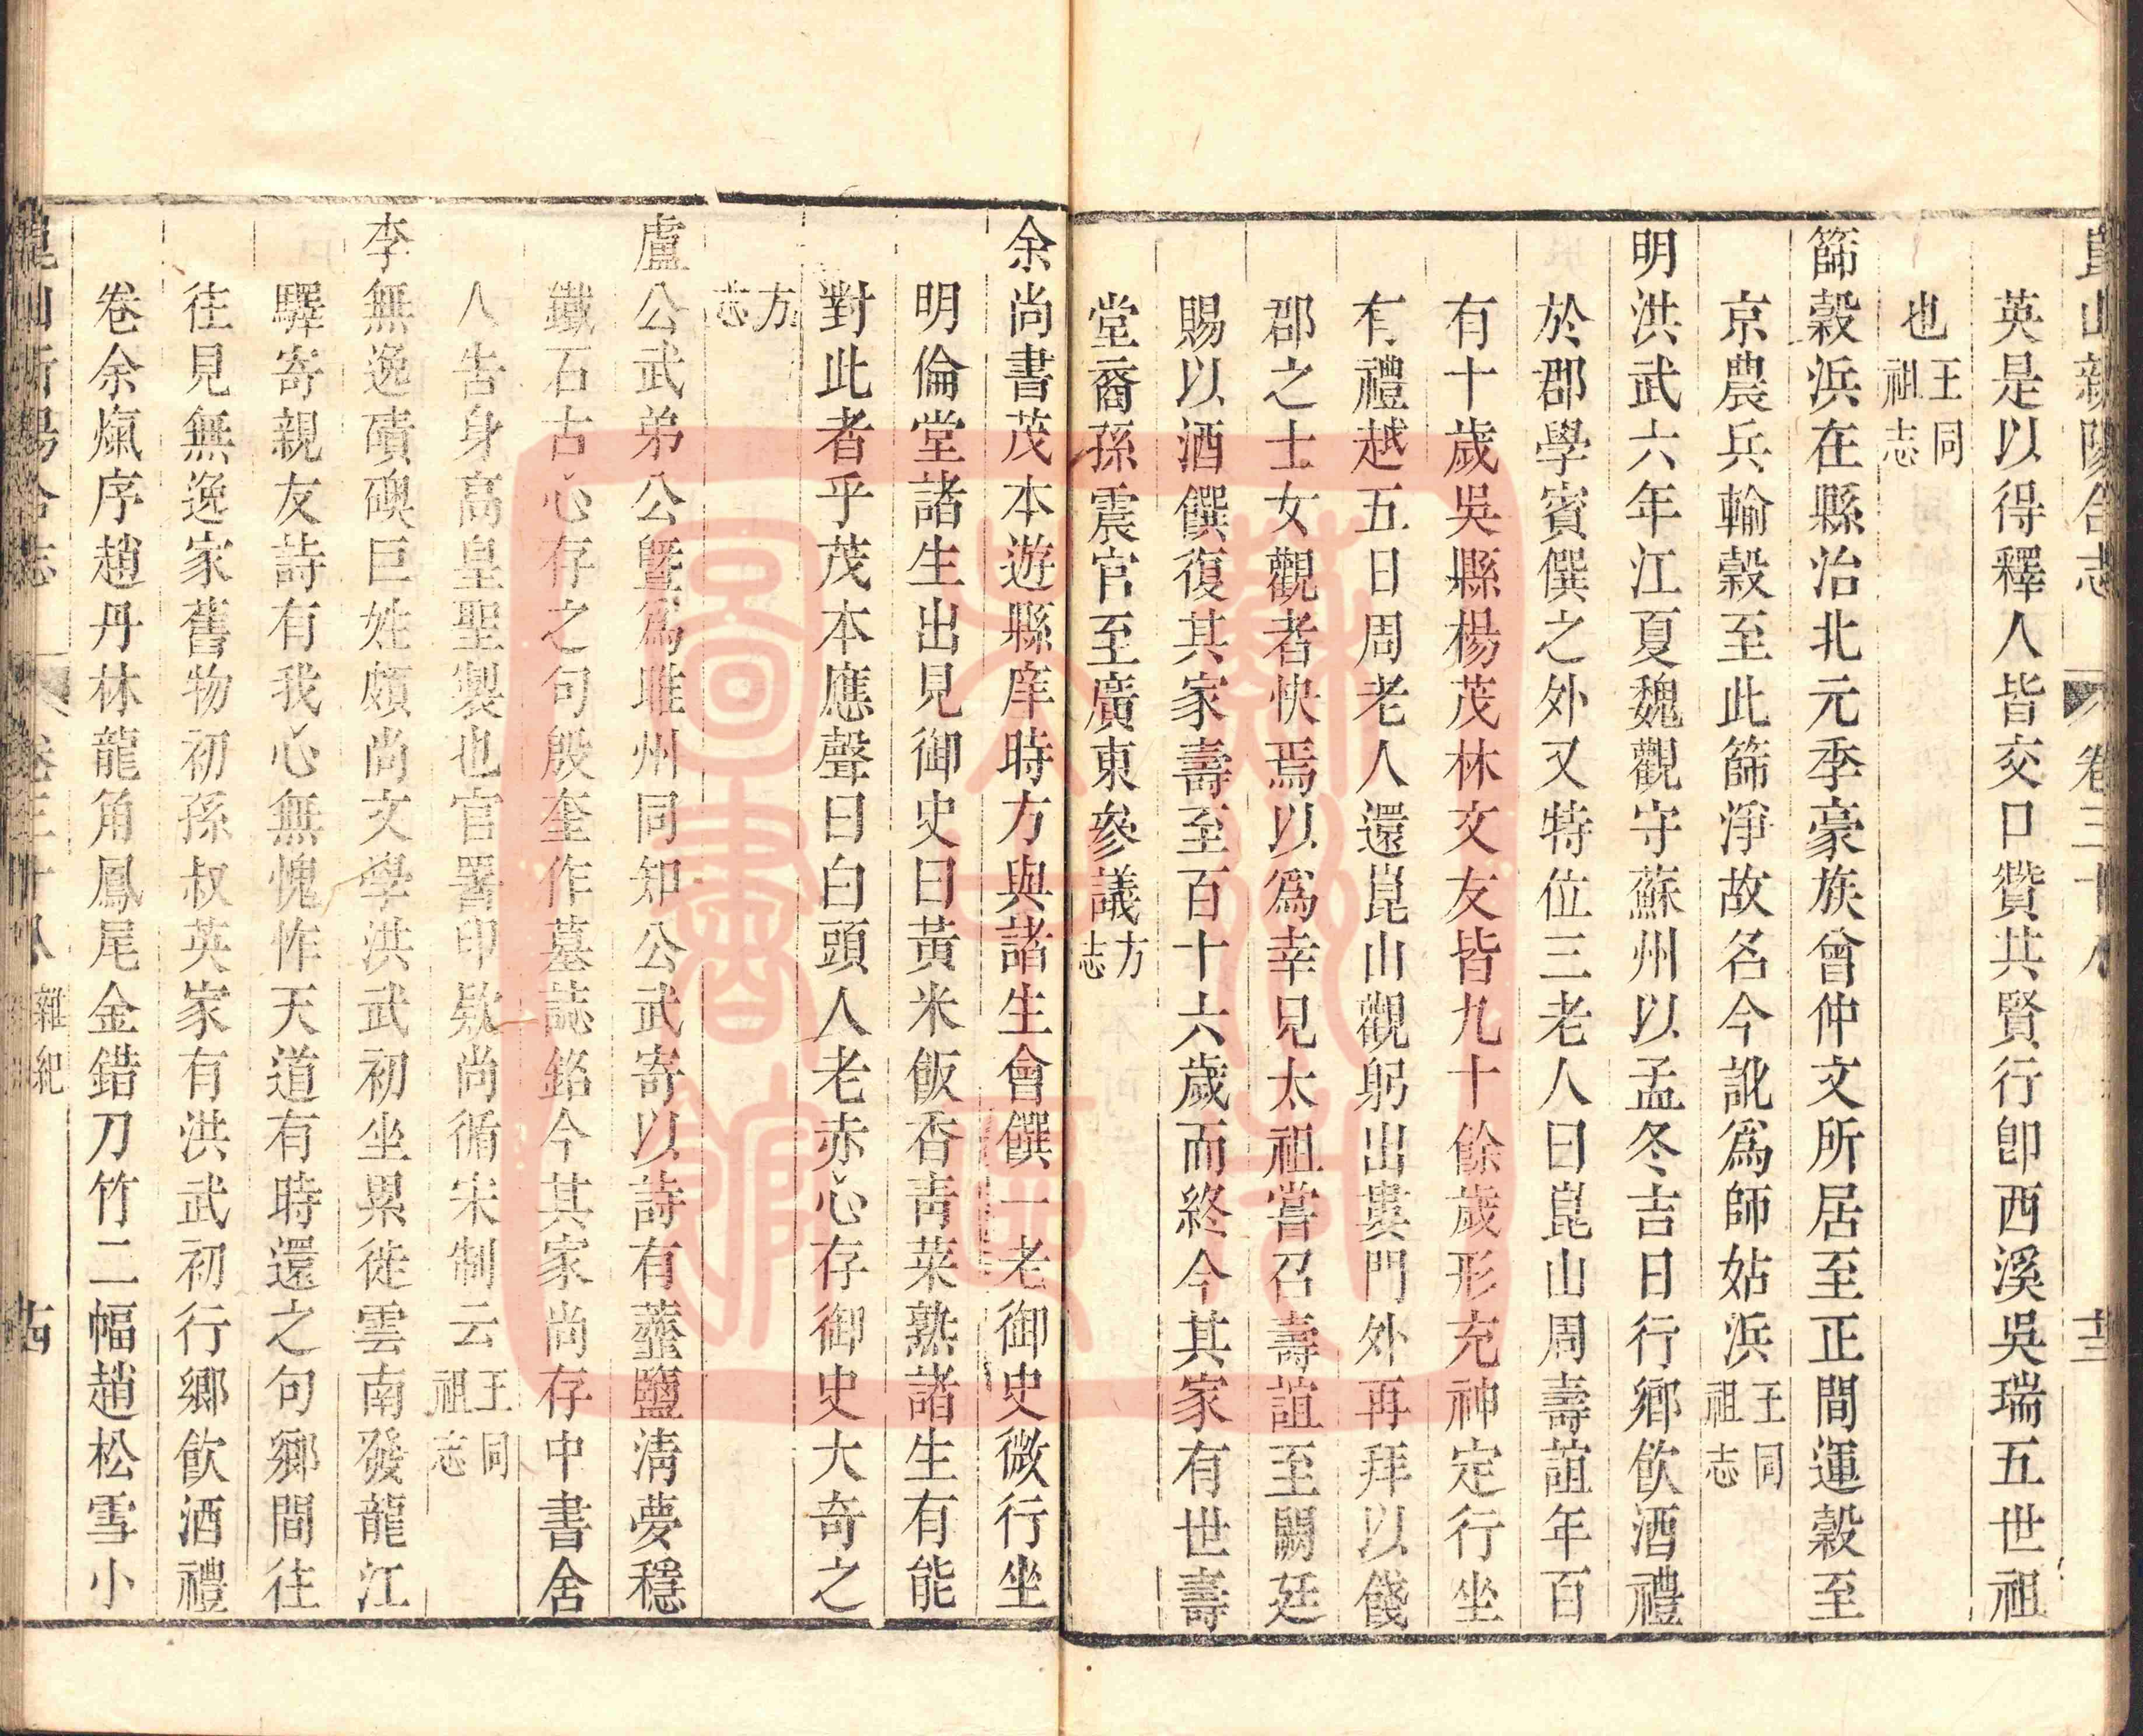 崑山新陽合志　卷三十八　十三
英是以得釋人皆交口贊其賢行卽西溪吳瑞五世祖
也王同祖志
篩穀浜在縣治北元季豪族曾仲文所居至正間運穀至
京農兵輸穀至此篩淨故名今訛爲師姑浜王同祖志
明洪武六年江夏魏觀守蘇州以孟冬吉日行鄉飮酒禮
於郡學賓僎之外又特位三老人曰崑山周壽誼年百
有十歲吳縣楊茂林文友皆九十餘歲形充神定行坐
有禮越五日周老人還崑山觀躬出婁門外再拜以餞
郡之士女觀者快焉以爲幸見太祖嘗召壽誼至闕廷
賜以酒饌復其家壽至百十六歲而終今其家有世壽
堂裔孫震官至廣東參議方志
余尚書茂本遊縣庠時方與諸生會饌一老御史微行坐
明倫堂諸生出見御史曰黃米飯香靑菜熟諸生有能
對此者乎茂本應聲曰白頭人老赤心存御史大奇之
方志
盧公武弟公曁爲睢州同知公武寄以詩有虀鹽淸夢穩
鐵石古心存之句殷奎作墓誌銘今其家尚存中書舍
人告身高皇聖製也官署印欵尚循宋制云王同祖志
李無逸磧礇巨姓頗尚文學洪武初坐累徙雲南發龍江
驛寄親友詩有我心無愧怍天道有時還之句鄉間往
往見無逸家舊物初孫叔英家有洪武初行鄉飮酒禮
卷余熂序趙丹林龍角鳳尾金錯刀竹二幅趙松雪小
崑山新陽合志　卷三十八　雜紀　十四
蘇州市立圖書館藏